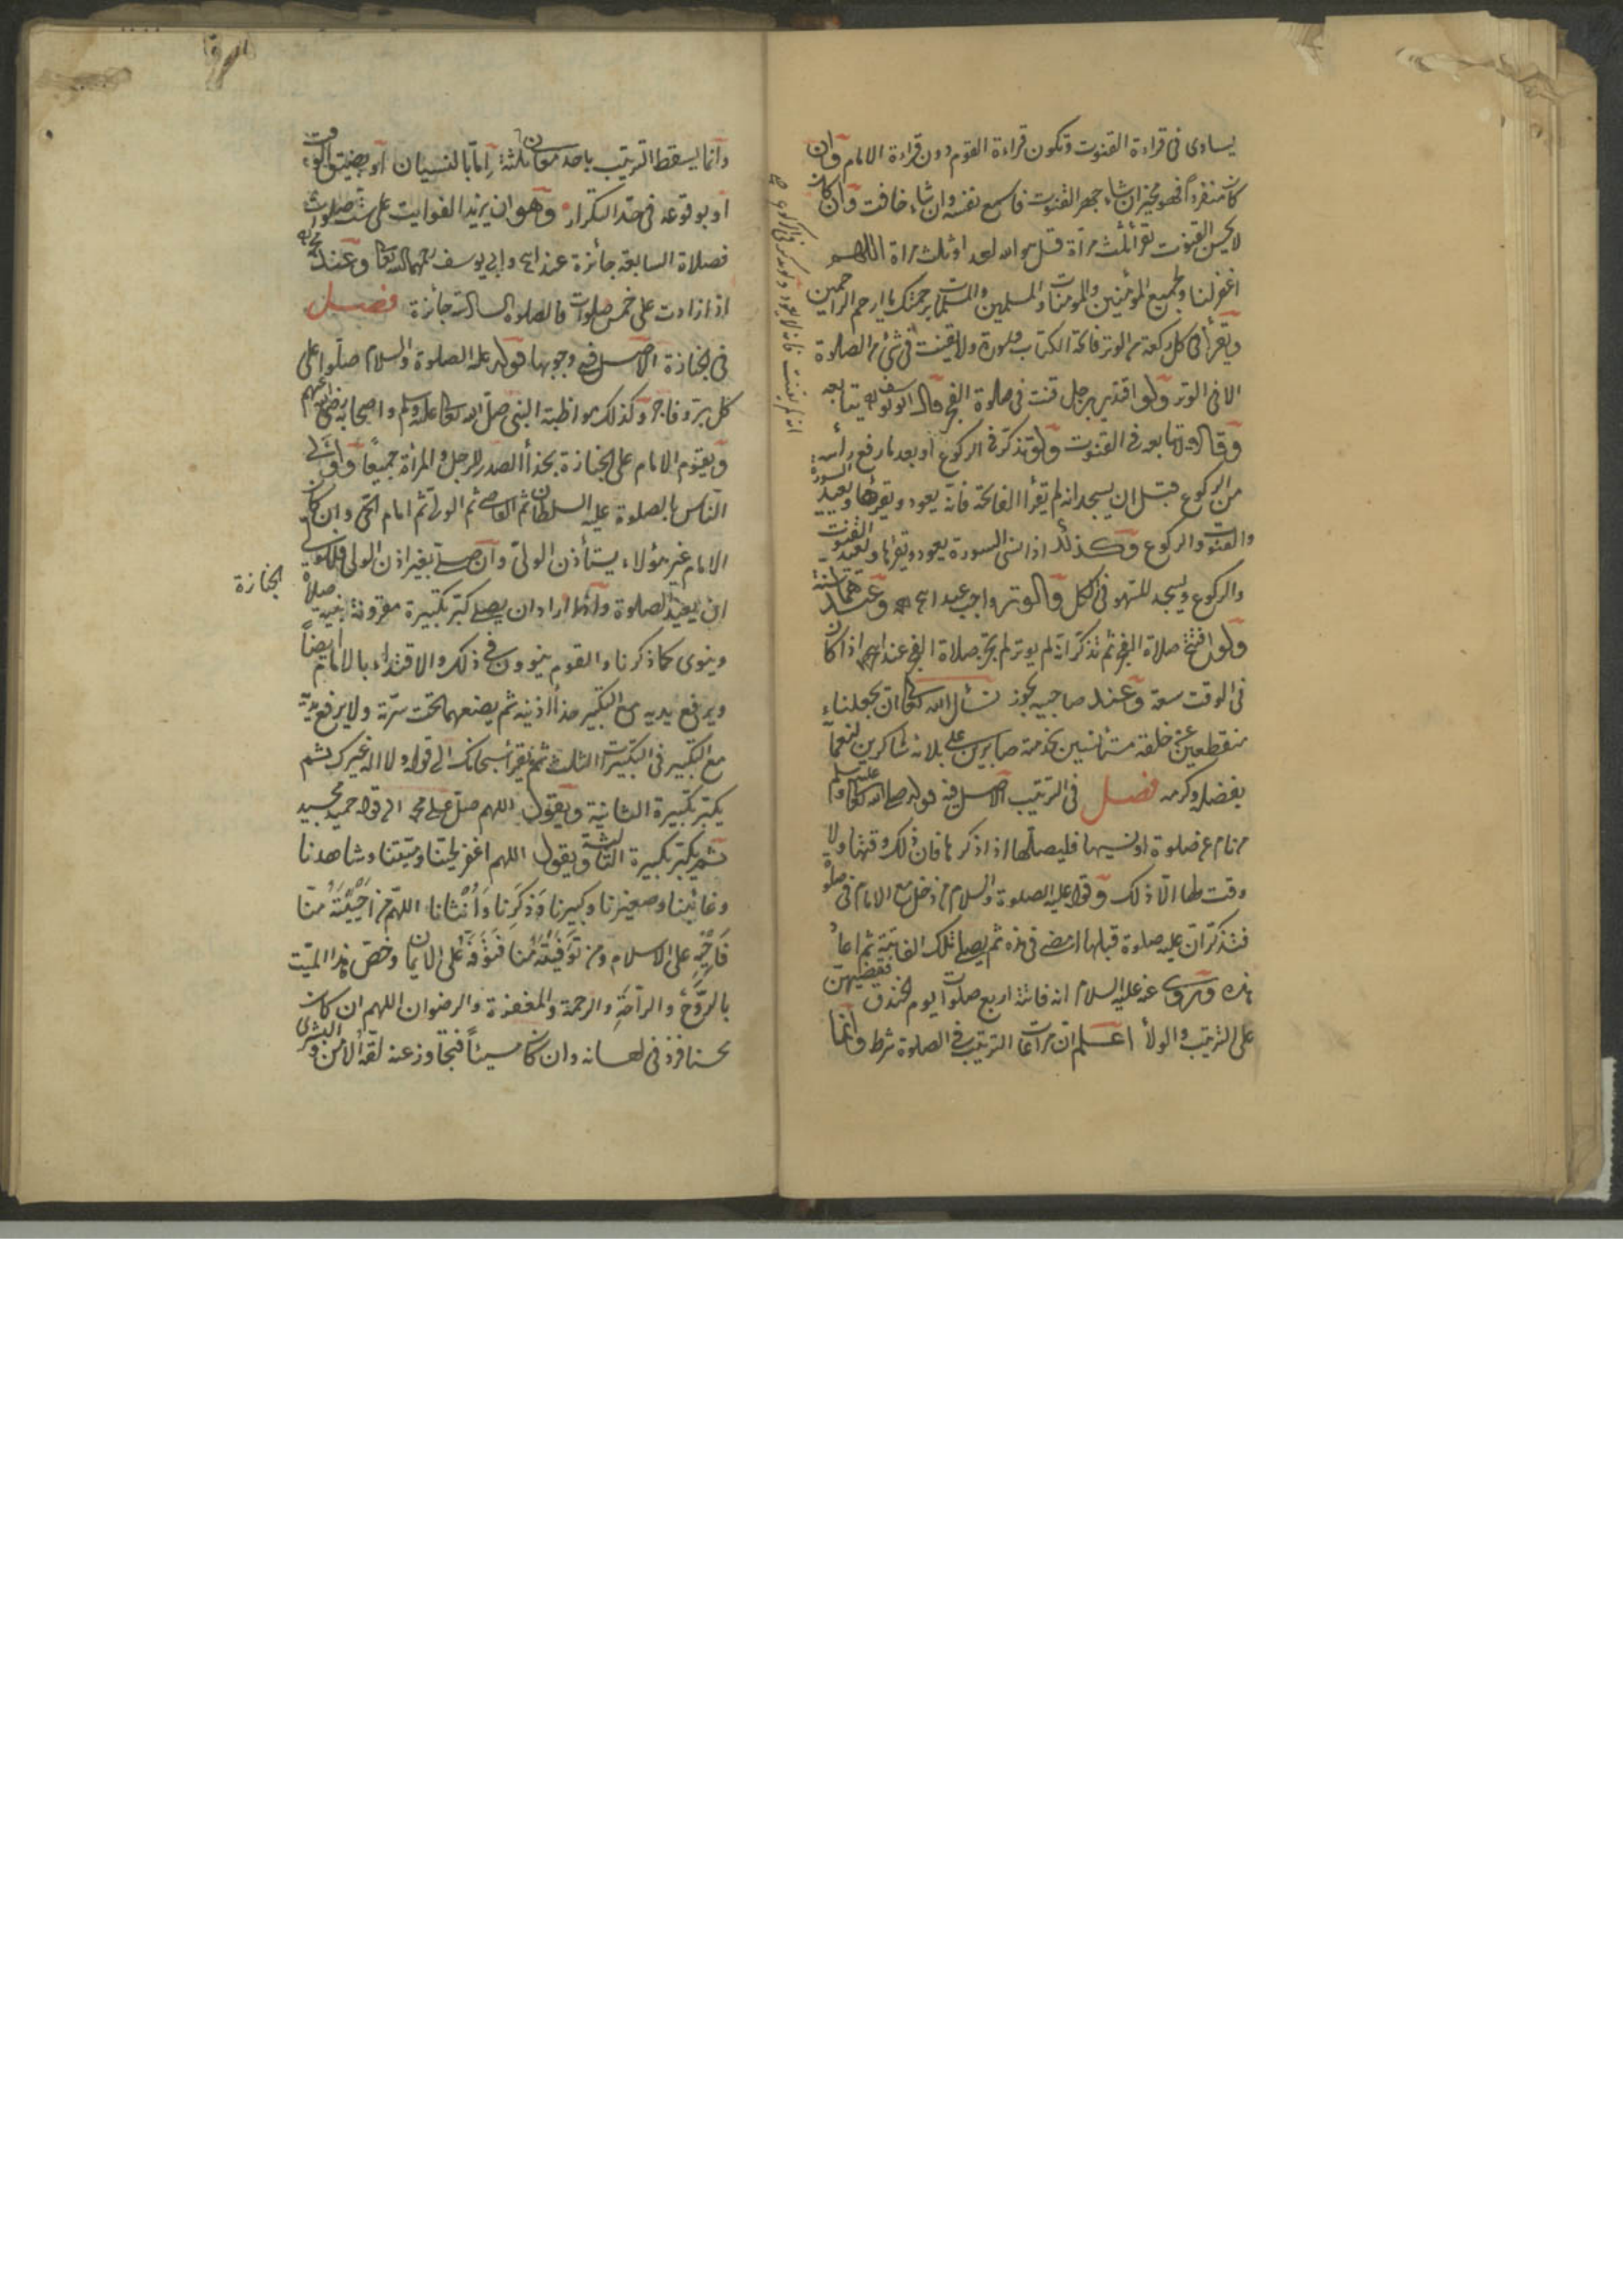 يساوى فى قراءة القنوت وتكون قراءة القوم دون قراءة الامام وان
كان منفرداً فهو مخير ان شاء جهر القنوت فاسمع نفسه وان شاء خافت وان كان
لا يحسن القنوت يقرأ ثلث مرأة قل هو الله احد او ثلث مراة اللهم
اغفر لنا ولجميع المؤمنين والمومنات والمسلمين والمسلمات برحمتك يا ارحم الراحمين
ويقرأ فى كل ركعة من الوتر فاتحة الكتاب وسورة ولا يقنت فى شئ من الصلوة
الا فى الوتر ولو اقتدى برجل قنت فى صلوة الفجر قال ابو يوسف يتابعه
وقالا لا يتابعه فى القنوت ولو تذكر فى الركوع او بعد ما رفع رأسه
من الركوع قبل ان يسجد انه لم يقرأ الفاتحة فانه يعود ويقرأها ويعيد السورة
والقنوت والركوع وكذلك اذا نسى السورة يعود ويقرأها ويعيد القنوت
والركوع ويسجد للسهو فى الكل والوتر واجب عند ابى ح وعندهما سنة
ولو افتتح صلاة الفجر ثم تذكر انه لم يوتر لم تجز صلاة الفجر عند ابى ح اذا كان
فى الوقت سعة وعند صاحبيه تجوز نسأل الله تعالى ان يجعلنا
منقطعين عن خلقه مستأنسين بخدمته صابرين على بلائه شاكرين لنعمائه
بفضله وكرمه فصل فى الترتيب الاصل فيه قوله صلى الله تعالى عليه وسلم
من نام عن صلوة او نسيها فليصلها اذا ذكرها فان ذلك وقتها ولا
وقت لها الا ذلك وقوله عليه الصلوة والسلام من دخل مع الامام فى صلوة
فتذكر ان عليه صلوة قبلها مضى فى هذه ثم يصلى تلك الفايتة ثم اعاد
هذه وروى عنه عليه السلام انه فاتته اربع صلوات يوم الخندق فقضيهن
على الترتيب والولاء اعلم ان مراعات الترتيب فى الصلوة شرط وانما
وانما يسقط الترتيب باحد معان ثلثة اما بالنسيان او بضيق الوقت
او بوقوعه فى حد التكرار وهو ان يزيد الفوايت على ست صلوات
فصلاة السابعة جائزة عند ابى ح وابى يوسف رحمهما الله تعالى وعند محمد
اذا زادت على خمس صلوات فالصلوة السادسة جائزة فصل
فى الجنازة الاصل فى وجوبها قوله عليه الصلوة والسلام صلوا على
كل بر وفاجر وكذلك مواظبة النبى صلى الله تعالى عليه وسلم واصحابه رضى الله عنهم
ويقوم الامام على الجنازة بحذأ الصدر للرجل والمرأة جميعاً واولى
الناس بالصلوة عليه السلطان ثم القاضى ثم الولى ثم امام الحى وان كان
الامام غير هؤلاء يستأذن الولى وان صلى بغير اذن الولى فللولى
ان يعيد الصلوة واذا اراد ان يصلى كبر تكبيرة مقرونة بنية صلاة الجنازة
وينوى كما ذكرنا والقوم ينوون فى ذلك والاقتداء بالامام ايضاً
ويرفع يديه مع التكبير حذأ اذنيه ثم يضعهما تحت سرته ولا يرفع يديه
مع التكبير فى التكبيرات الثلث ثم يقرأ سبحانك الى قوله ولا اله غيرك ثم
يكبر تكبيرة الثانية ويقول اللهم صل على محمد الى قوله حميد مجيد
ثم يكبر تكبيرة الثالثة ويقول اللهم اغفر لحينا وميتنا وشاهدنا
وغائبنا وصغيرنا وكبيرنا وذكرنا وانثانا اللهم من احييته منا
فاحيه على الاسلام ومن توفيته منا فتوفه على الايمان وخص هذا الميت
بالروح والراحة والرحمة والمغفرة والرضوان اللهم ان كان
محسنا فزد فى احسانه وان كان مسيئاً فتجاوز عنه لقه الامن والبشرى